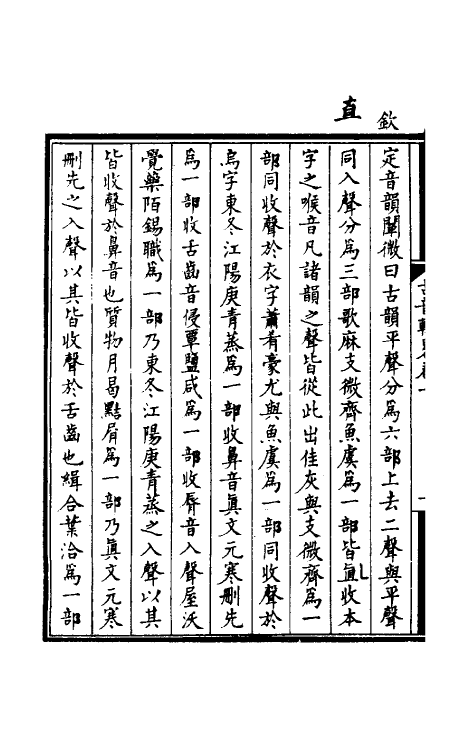 欽
定音韻闡微曰古韻平聲分為六部上去二聲與平聲
同入聲分為三部歌麻支微齊魚虞為一部皆直收本
字之喉音凡諸韻之聲皆從此出佳灰與支微齊為一
部同收聲於衣字蕭肴豪尤與魚虞為一部同收聲於
烏字東冬江陽庚青蒸為一部收鼻音真文元寒刪先
為一部收舌齒音侵覃鹽咸為一部收脣音入聲屋沃
覺藥陌錫職為一部乃東冬江陽庚青蒸之入聲以其
皆收聲於鼻音也質物月曷黠屑為一部乃真文元寒
刪先之入聲以其皆收聲於舌齒也緝合葉洽為一部
直